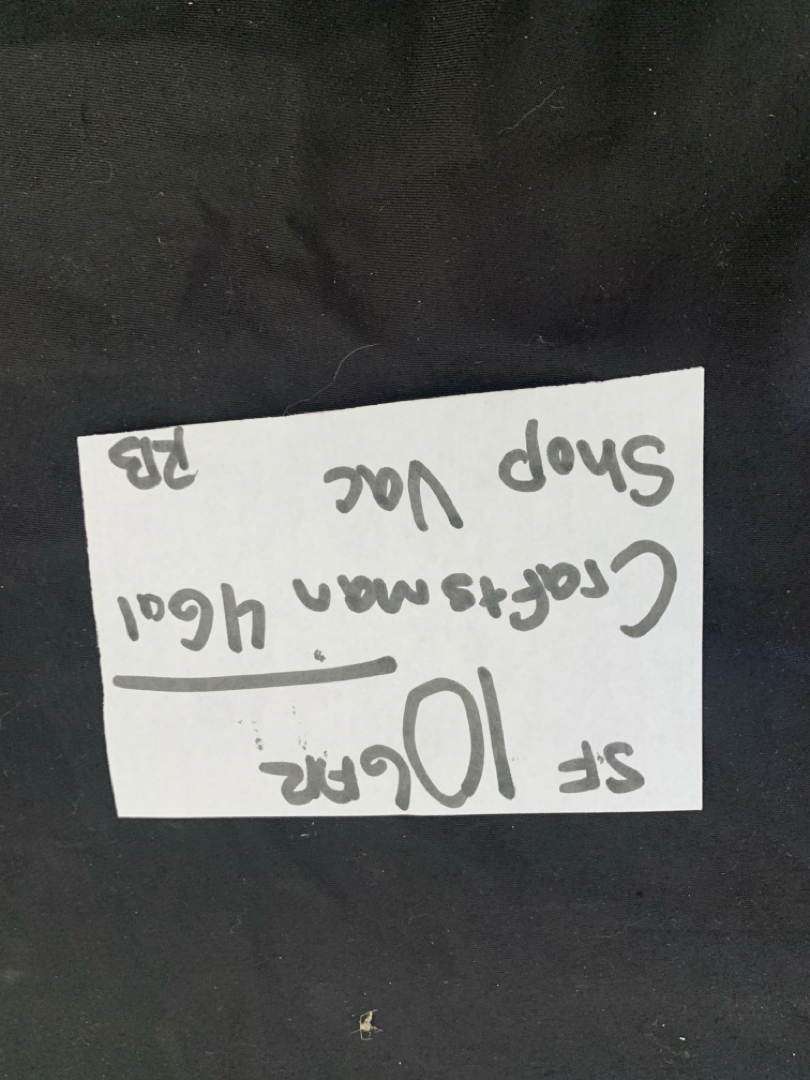 SF 10 GAR
Craftsman 4Gal
Shop Vac RB